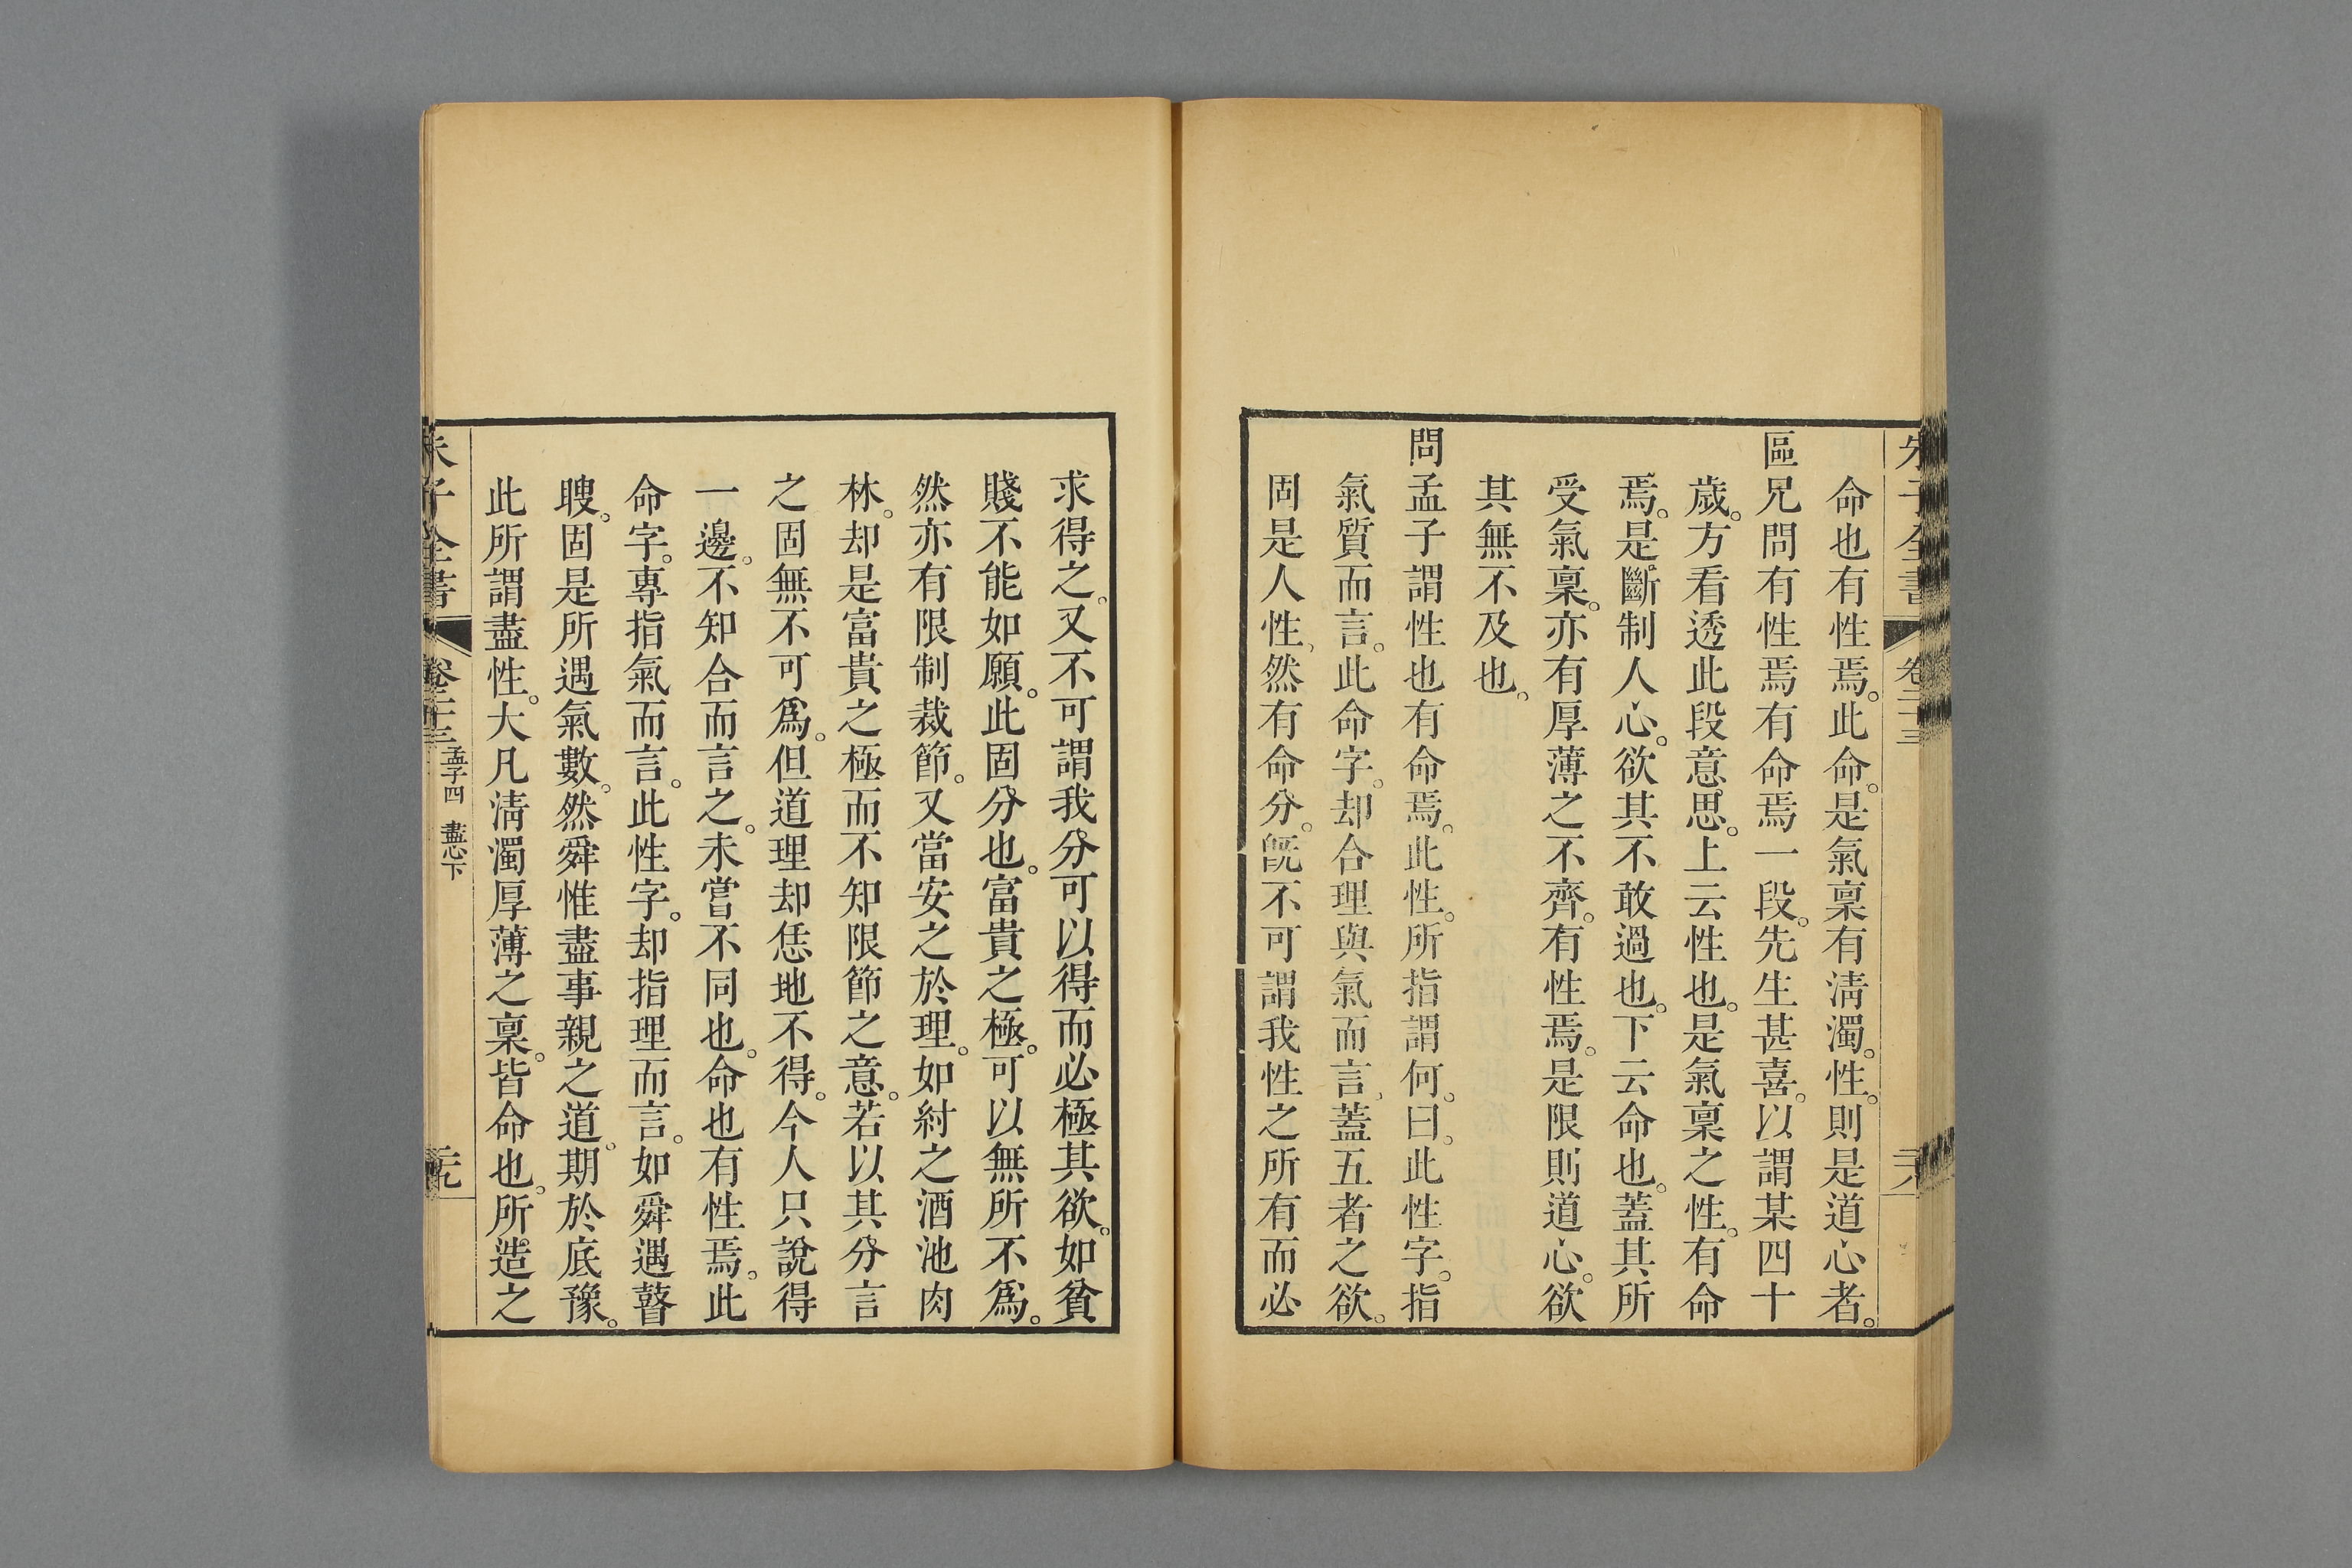 朱子全書 卷二十三 二八
命也有性焉。此命。是氣稟有淸濁。性。則是道心者。
區兄問有性焉有命焉一段。先生甚喜。以謂某四十
歲。方看透此段意思。上云性也。是氣稟之性。有命
焉。是斷制人心。欲其不敢過也。下云命也。蓋其所
受氣稟。亦有厚薄之不齊。有性焉。是限則道心。欲
其無不及也。
問孟子謂性也有命焉。此性。所指謂何。曰。此性字。指
氣質而言。此命字。却合理與氣而言、蓋五者之欲。
固是人性、然有命分。旣不可謂我性之所有而必
求得之。又不可謂我分可以得而必極其欲。如貧
賤不能如願。此固分也。富貴之極。可以無所不爲。
然亦有限制裁節。又當安之於理。如紂之酒池肉
林。却是富貴之極而不知限節之意。若以其分言
之固無不可爲。但道理却恁地不得。今人只說得
一邊。不知合而言之。未嘗不同也。命也有性焉。此
命字。專指氣而言。此性字。却指理而言。如舜遇瞽
瞍。固是所遇氣數。然舜惟盡事親之道。期於底豫。
此所謂盡性。大凡淸濁厚薄之稟。皆命也。所造之
朱子全書 卷二十三 孟子四 盡心下 二九